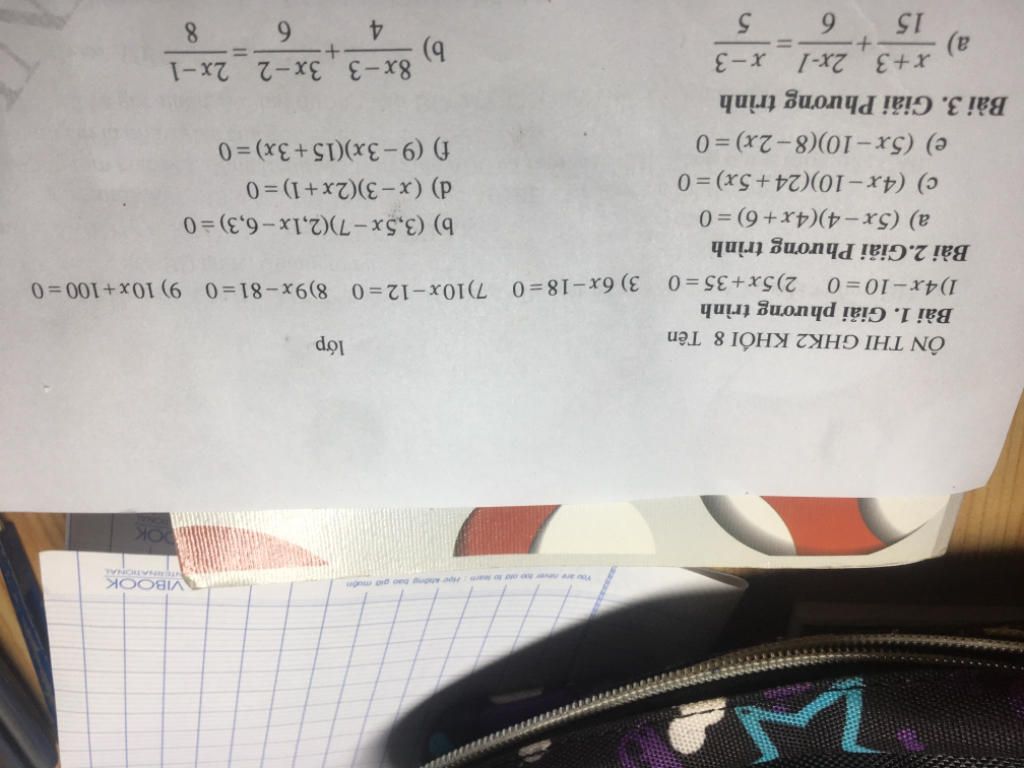 ÔN THI GHK2 KHỐI 8 Tên lớp
Bài 1. Giải phương trình
1)4x−10=0 2)5x+35=0 3) 6x−18=0 7)10x−12=0 8)9x−81=0 9) 10x+100=0
Bài 2.Giải Phương trình
a) (5x−4)(4x+6)=0 b) (3,5x−7)(2,1x−6,3)=0
c) (4x−10)(24+5x)=0 d) (x−3)(2x+1)=0
e) (5x−10)(8−2x)=0 f) (9−3x)(15+3x)=0
Bài 3. Giải Phương trình
a) (x+3)/15 + (2x-1)/6 = (x−3)/5 b) (8x−3)/4 + (3x−2)/6 = (2x−1)/8
You are never too old to learn : Học không bao giờ muộn
VIBOOK
INTERNATIONAL